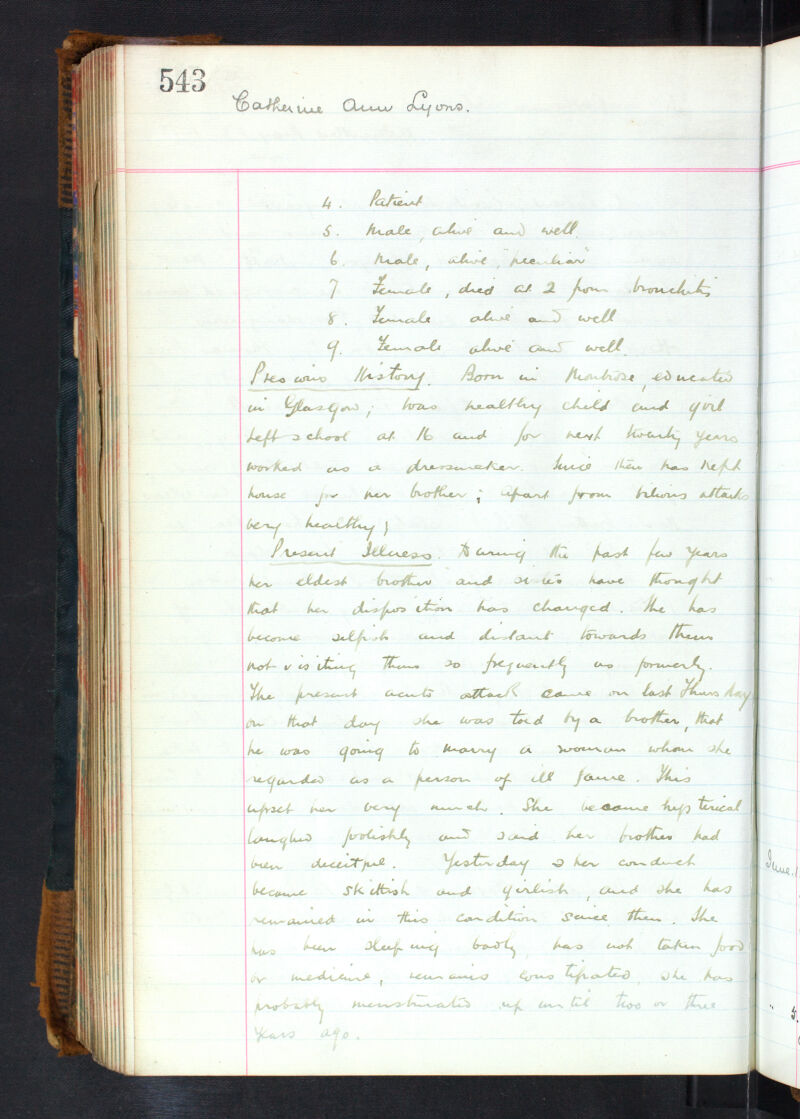 543
Catherine Ann Lyons.
4. Patient
5. Male, alive and well.
6. Male, alive, "peculiar"
7 Female, died at 2 from bronchitis
8. Female alive and well
9. Female alive and well.
Previous History. Born in Montrose, educated
in Glasgow; was healthy child and girl
Left school at 16 and for next twenty years
worked as a dressmaker. Since then has kept
house for her brother; apart from bilious attacks
very healthy;
Present Illness. During the past few years
her eldest brother and sister have thought
that her disposition has changed. She has
become selfish and distant towards them
not visiting them so frequently as formerly.
The present acute attack came on last Thursday
on that day she was told by a brother, that
he was going to marry a woman whom she
regarded as a person of ill fame. This
upset her very much. She became hysterical
laughed foolishly and said her brother had
been deceitful. Yesterday her conduct
became skittish and girlish, and she has
remained in this condition since then. She
has been sleeping badly, has not taken food
or medicine, remains constipated, she has
probably menstruated up until two or three
years ago.
June.